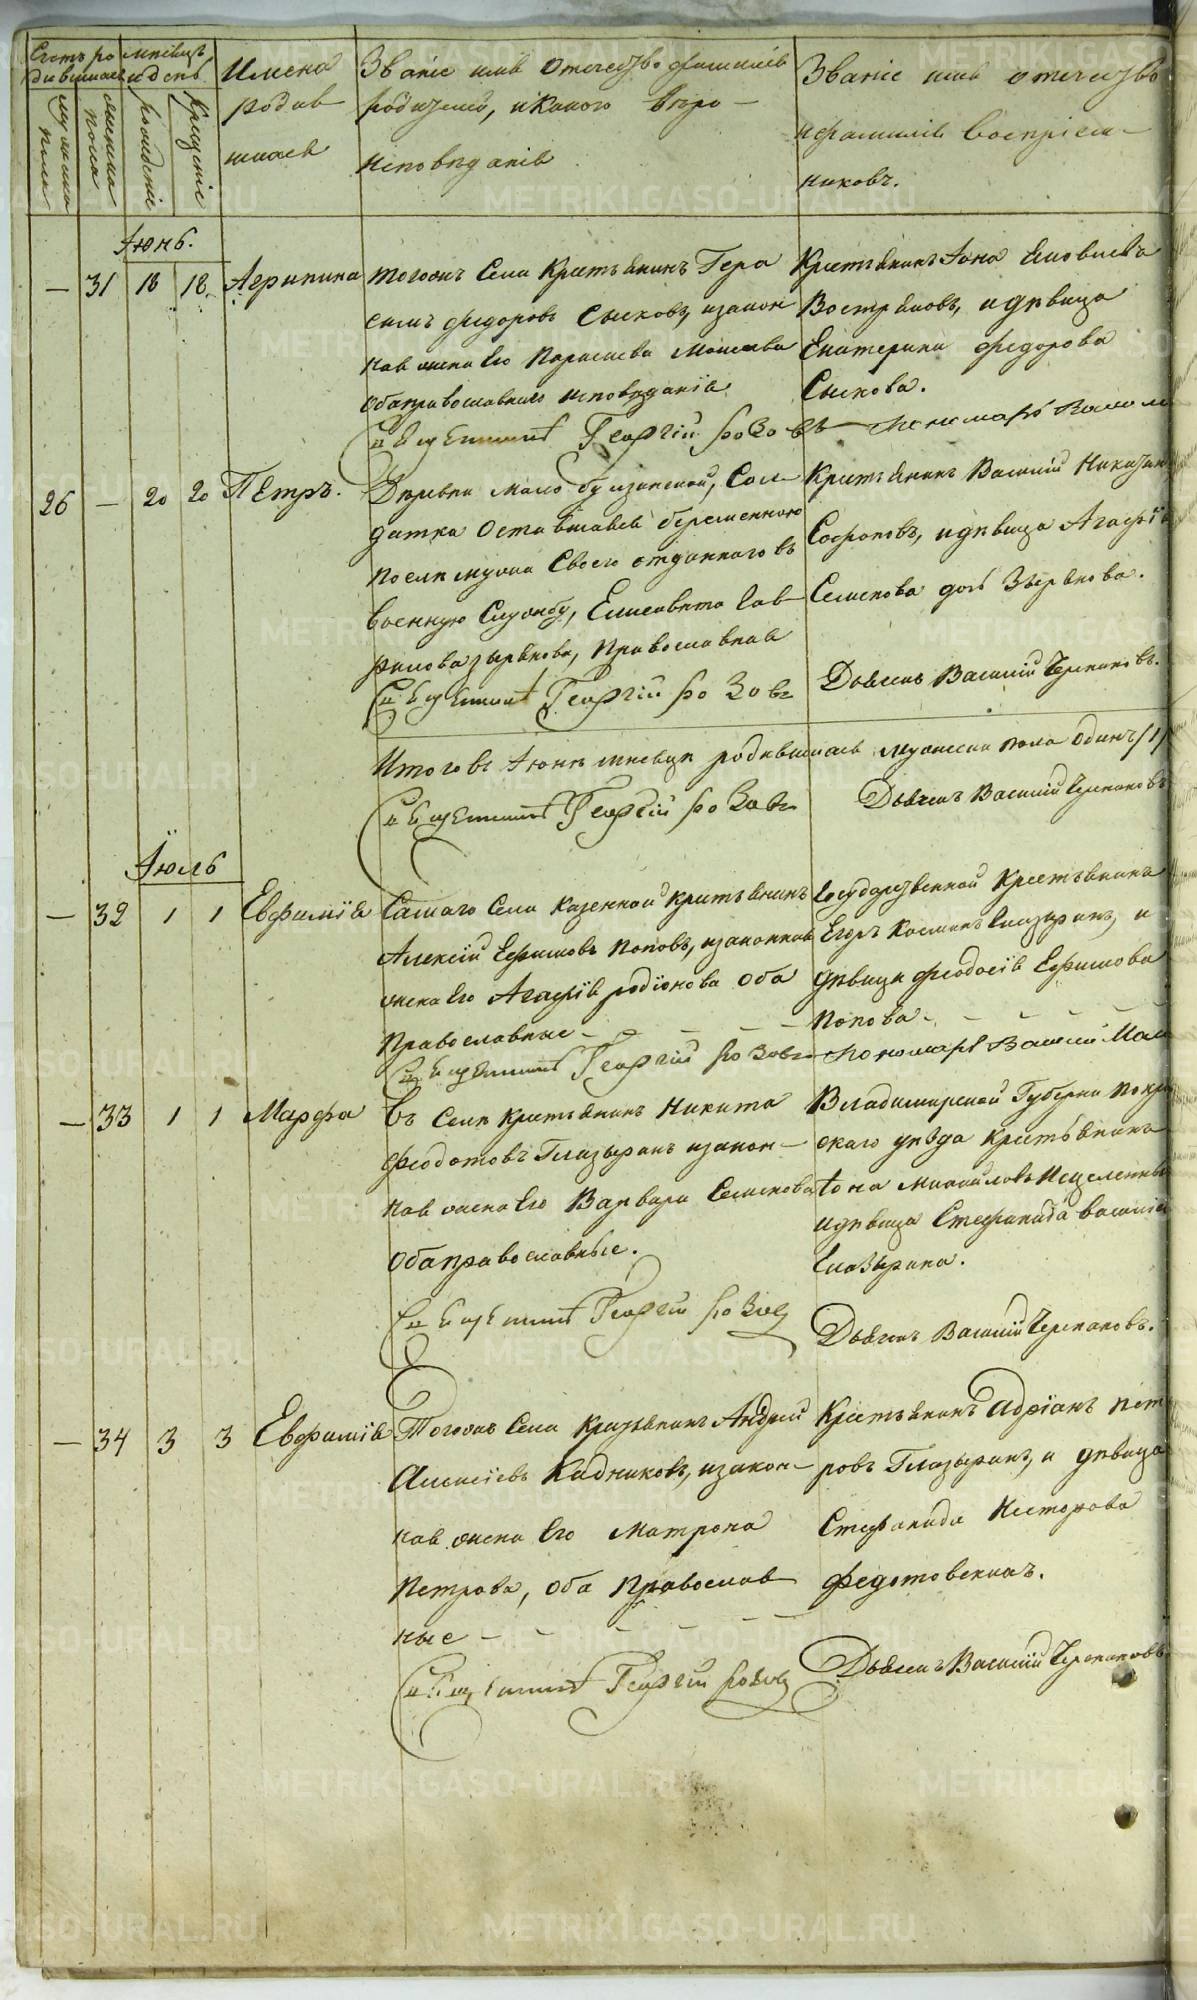 Счетъ ро дившихся
Мѣсяцъ и день
Имена
родив
шихся
Званіе имя отечество фамилія
родителей, и какого вѣро-
исповѣданія
Званіе имя отечество
и фамилія воспріем-
никовъ.
мужеска пола
женска пола
рожденіе
крещеніе
Іюнь.
— 31 18 18 Агрипина
Тогожъ села крестьянинъ Гера
симъ Федоровъ Сысковъ, и закон
ная жена его Параскева Моисеева
оба православнаго исповѣданія
Священникъ Георгій Розовъ
Крестьянинъ Іона Яковлевъ
Востряковъ, и дѣвица
Екатерина Федорова
Сыскова.
Пономарь
26 — 20 20 Петръ.
Деревни Мало солдатка оставшаяся беременною
послѣ мужа своего отданнаго въ
военную службу, Елисавета Гав-
рилова Зырянова, православная
Священникъ Георгій Розовъ
Крестьянинъ Василій Никитин
Софроновъ, и дѣвица Агафія
Семенова дочь Зырянова.
Дьячекъ Василій Черепановъ.
Итого въ Іюнѣ мѣсяцѣ родившихся мужеска пола одинъ /1/
Священникъ Георгій Розовъ
Дьячекъ Василій Черепановъ
Іюль
— 32 1 1 Евфимія
Самаго села казенной крестьянинъ
Алексій Ефимовъ Поповъ, и законная
жена его Агафія Родіонова оба
православные — — — —
Священникъ Георгій Розовъ
Государственной крестьянинъ
Егоръ Косминъ Глазыринъ, и
дѣвица Феодосія Ефимова
Попова. — — — —
Пономарь Василій
— 33 1 1 Марфа
Въ селѣ крестьянинъ Никита
Феодотовъ Глазыринъ и закон-
ная жена его Варвара Семенова
оба православные.
Священникъ Георгій Розовъ
Владимирской Губерніи Покро
скаго уѣзда крестьянинъ
Іона Михайловъ Исцеленный
и дѣвица Стефанида Василіе
Глазырина.
Дьячекъ Василій Черепановъ.
— 34 3 3 Евфимія
Тогожъ села крестьянинъ Андрей
Алексіевъ Кадниковъ, и закон-
ная жена его Матрона
Петрова, оба православ
ные — — — — — —
Священникъ Георгій Розовъ
Крестьянинъ Адріанъ Пет
ровъ Глазыринъ, и дѣвица
Стефанида Несторова
Федотовскихъ.
Дьячекъ Василій Черепановъ
METRIKI.GASO-URAL.RU